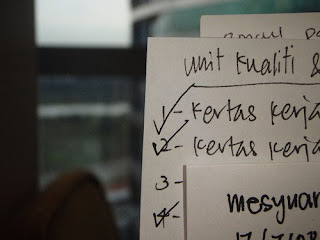 unit kualiti &
1- kertas kerja
2- kertas kerja
3-
4-
mesyuar